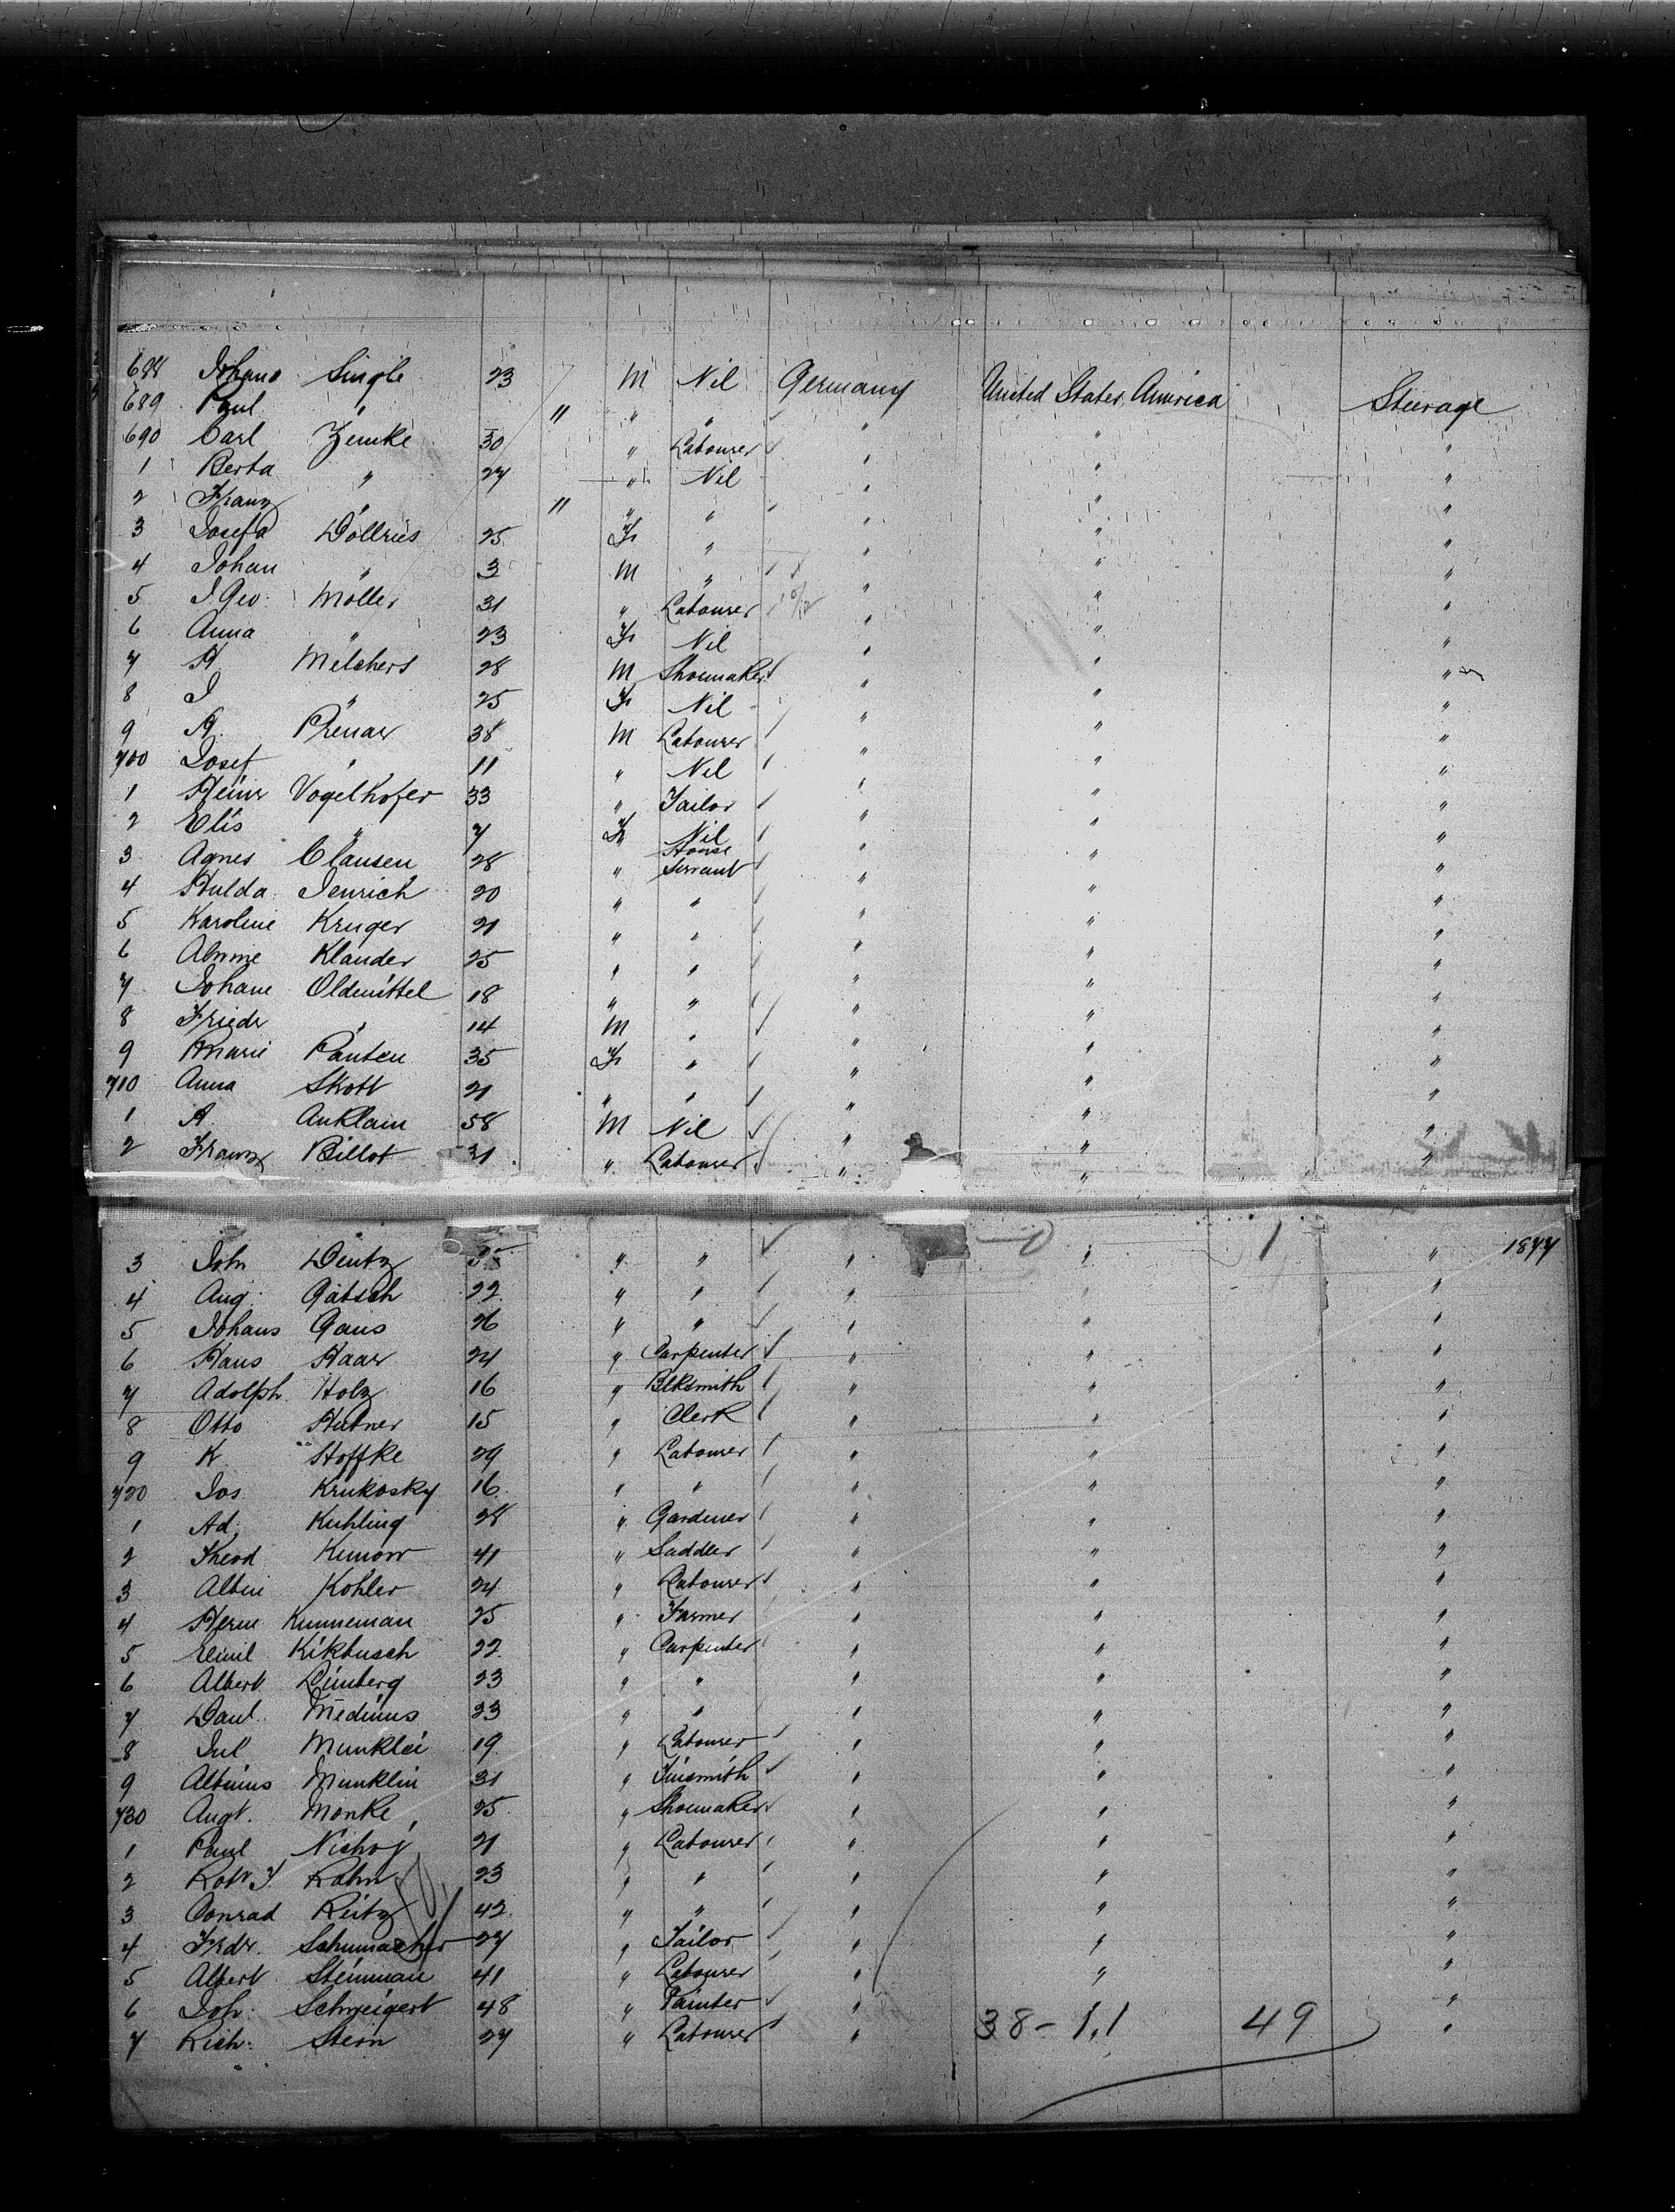 688 Johana Single 23 M Nil Germany United States America Steerage
689 Paul " 11 " " " " "
690 Carl Zemke 30 " Labourer " " "
1 Berta " 27 " Nil " " "
2 Franz " 11 " " " " "
3 Josefa Dollries 25 F " " " "
4 Johan " 3 M " " " "
5 J. Geo: Moller 31 " Labourer " " "
6 Anna " 23 F Nil " " "
7 H Melchers 28 M Shoemaker " " "
8 J " 25 F Nil " " "
9 H. Prenar 38 M Labourer " " "
700 Josef " 11 " Nil " " "
1 Heinr Vogelhofer 33 " Tailor " " "
2 Elis " 7 F Nil " " "
3 Agnes Clausen 28 " House Servant " " "
4 Hulda Jenrich 20 " " " " "
5 Karoline Kruger 21 " " " " "
6 Klander 25 " " " " "
7 Johane Oldenittel 18 " " " " "
8 Friedr " 14 M " " " "
9 Marie Panten 35 F " " " "
710 Anna Skott 21 " " " " "
1 A. Anklam 58 M Nil " " "
2 Franz Billot 31 " Labourer " " "
3 John Deutz " " " " 1 " 1877
4 Aug: Gatsch 22 " " " " "
5 Johans Gans 26 " " " " "
6 Hans Haar 24 " Carpenter " " "
7 Adolph Holz 16 " Blksmith " " "
8 Otto Hubner 15 " Clerk " " "
9 K. Hoffke 29 " Labourer " " "
720 Jos Krukosky 16 " " " " "
1 Ad: Kuhling 28 " Gardener " " "
2 Theod Kunow 41 " Saddler " " "
3 Albin Kohler 24 " Labourer " " "
4 Herm Kunneman 25 " Farmer " " "
5 Emil Kikbusch 22 " Carpenter " " "
6 Albert Limberg 23 " " " " "
7 Daul Medinus 23 " " " " "
8 Jul Munklei 19 " Labourer " " "
9 Albinus Munklin 31 " Tinsmith " " "
730 Augt. Monke 25 " Shoemaker " " "
1 Paul 21 " Labourer " " "
2 Robt J. Rahn 23 " " " " "
3 Conrad Reitz 42 " " " " "
4 Frdr. Schumacher 27 " Tailor " " "
5 Albert Steinman 41 " Labourer " " "
6 Joh: Schweigert 48 " Painter " "
7 Rich: Stern 27 " Labourer " 38-1,1 49 "